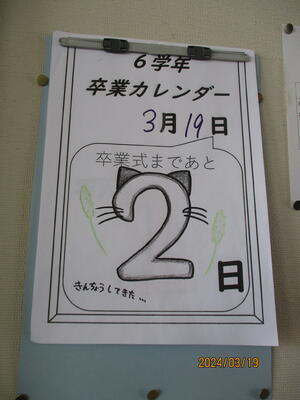 6学年
卒業カレンダー
3月19日
卒業式まであと
2
日
きんちょうしてきた…
2024/03/19